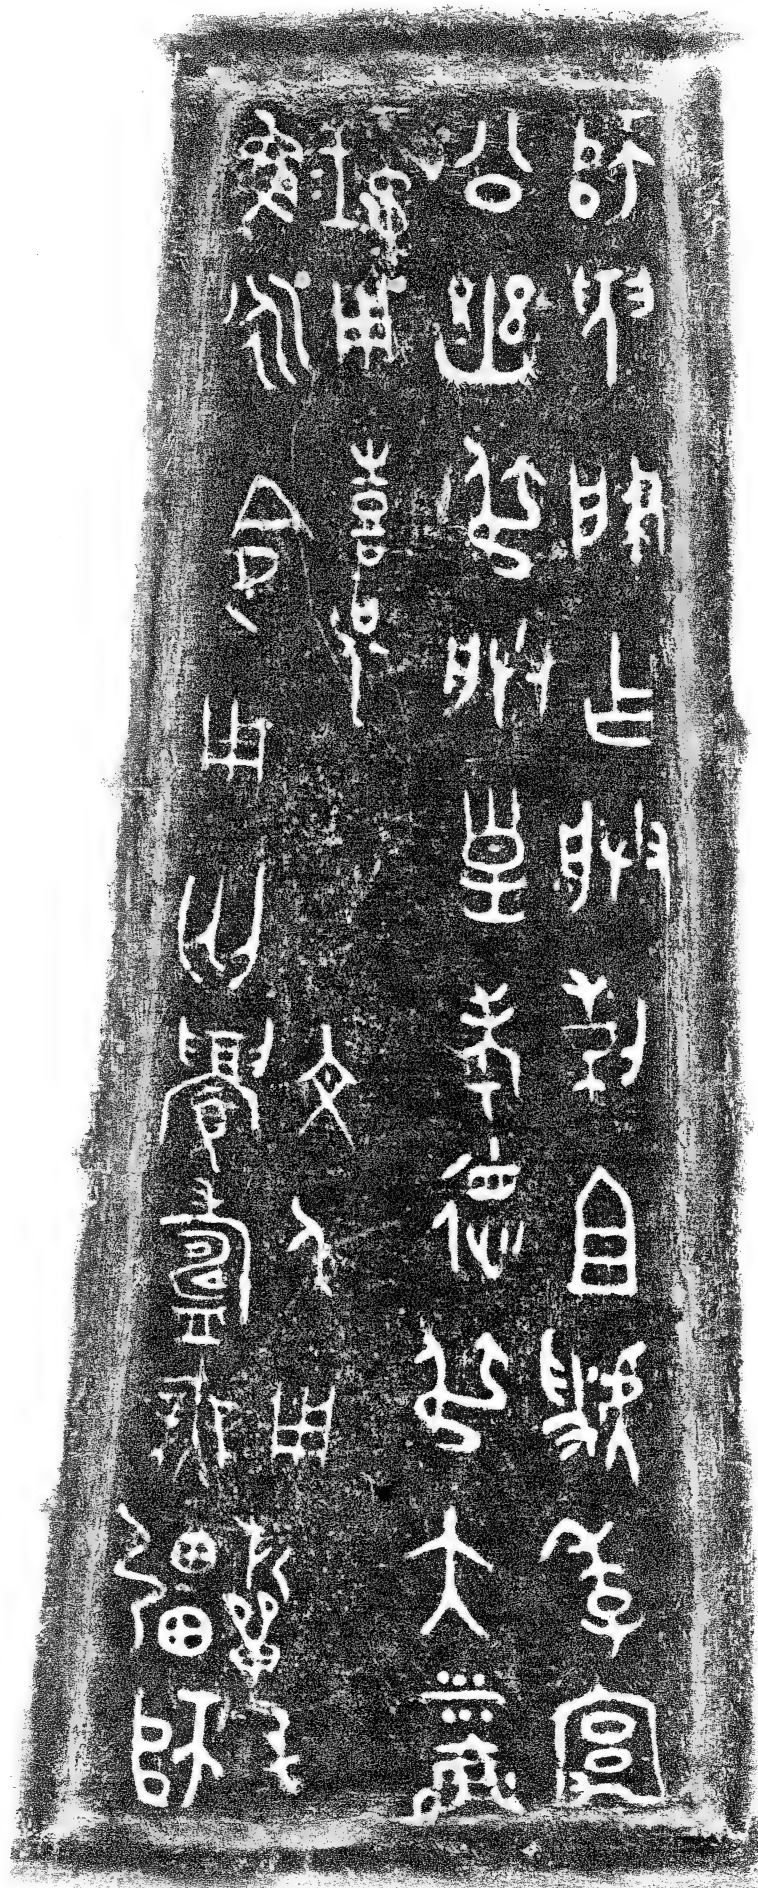 師臾肇乍朕剌且虢季宮
公幽叔朕皇考德叔大㯭
鐘用喜侃文人用祈屯
魯永令用匄眉壽無疆師